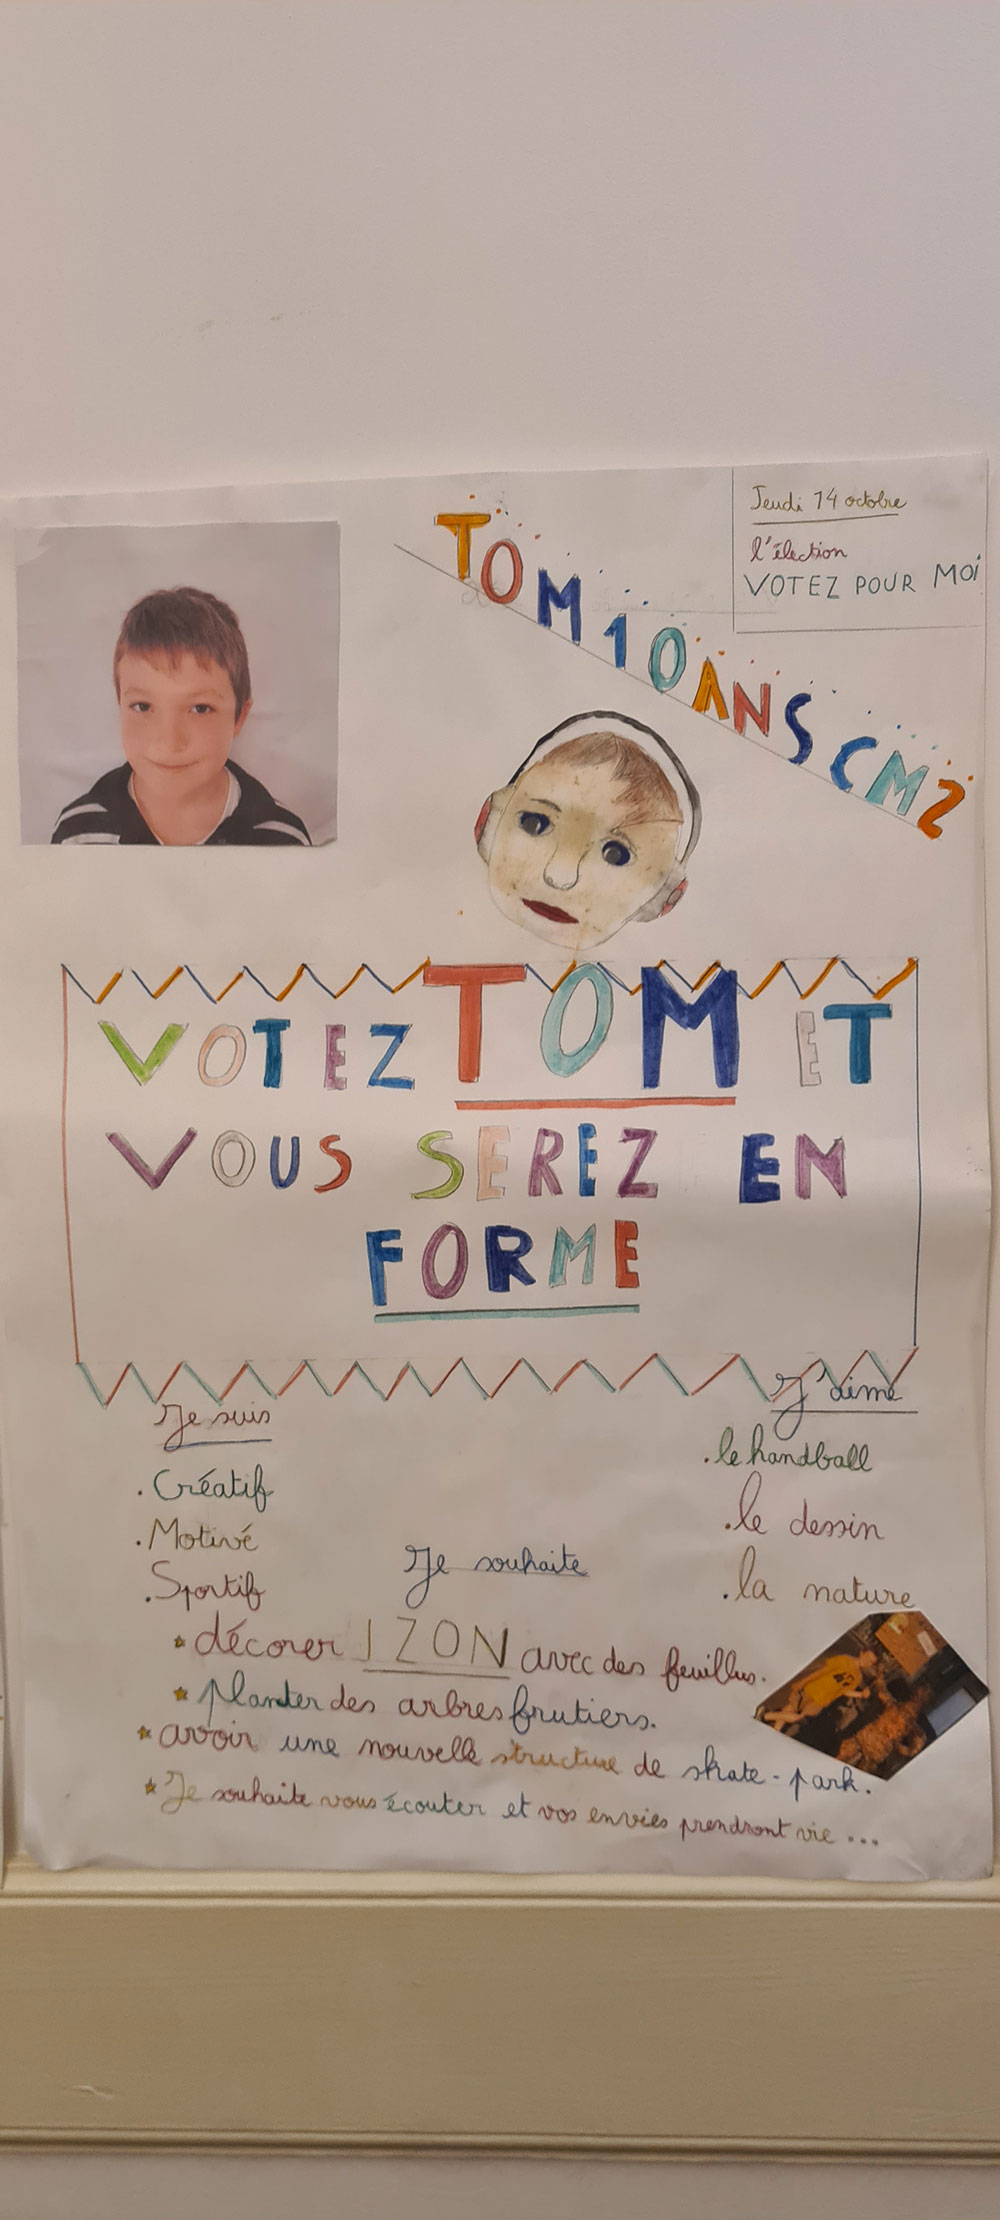 Jeudi 14 octobre
l'élection
VOTEZ POUR MOI
TOM 10 ANS CM2
VOTEZ TOM ET
VOUS SEREZ EN
FORME
Je suis
. Créatif
. Motivé
. Sportif
J'aime
. le handball
. le dessin
. la nature
Je souhaite
décorer IZON avec des feuillus.
planter des arbres frutiers.
avoir une nouvelle structure de skate-park.
Je souhaite vous écouter et vos envies prendront vie ...